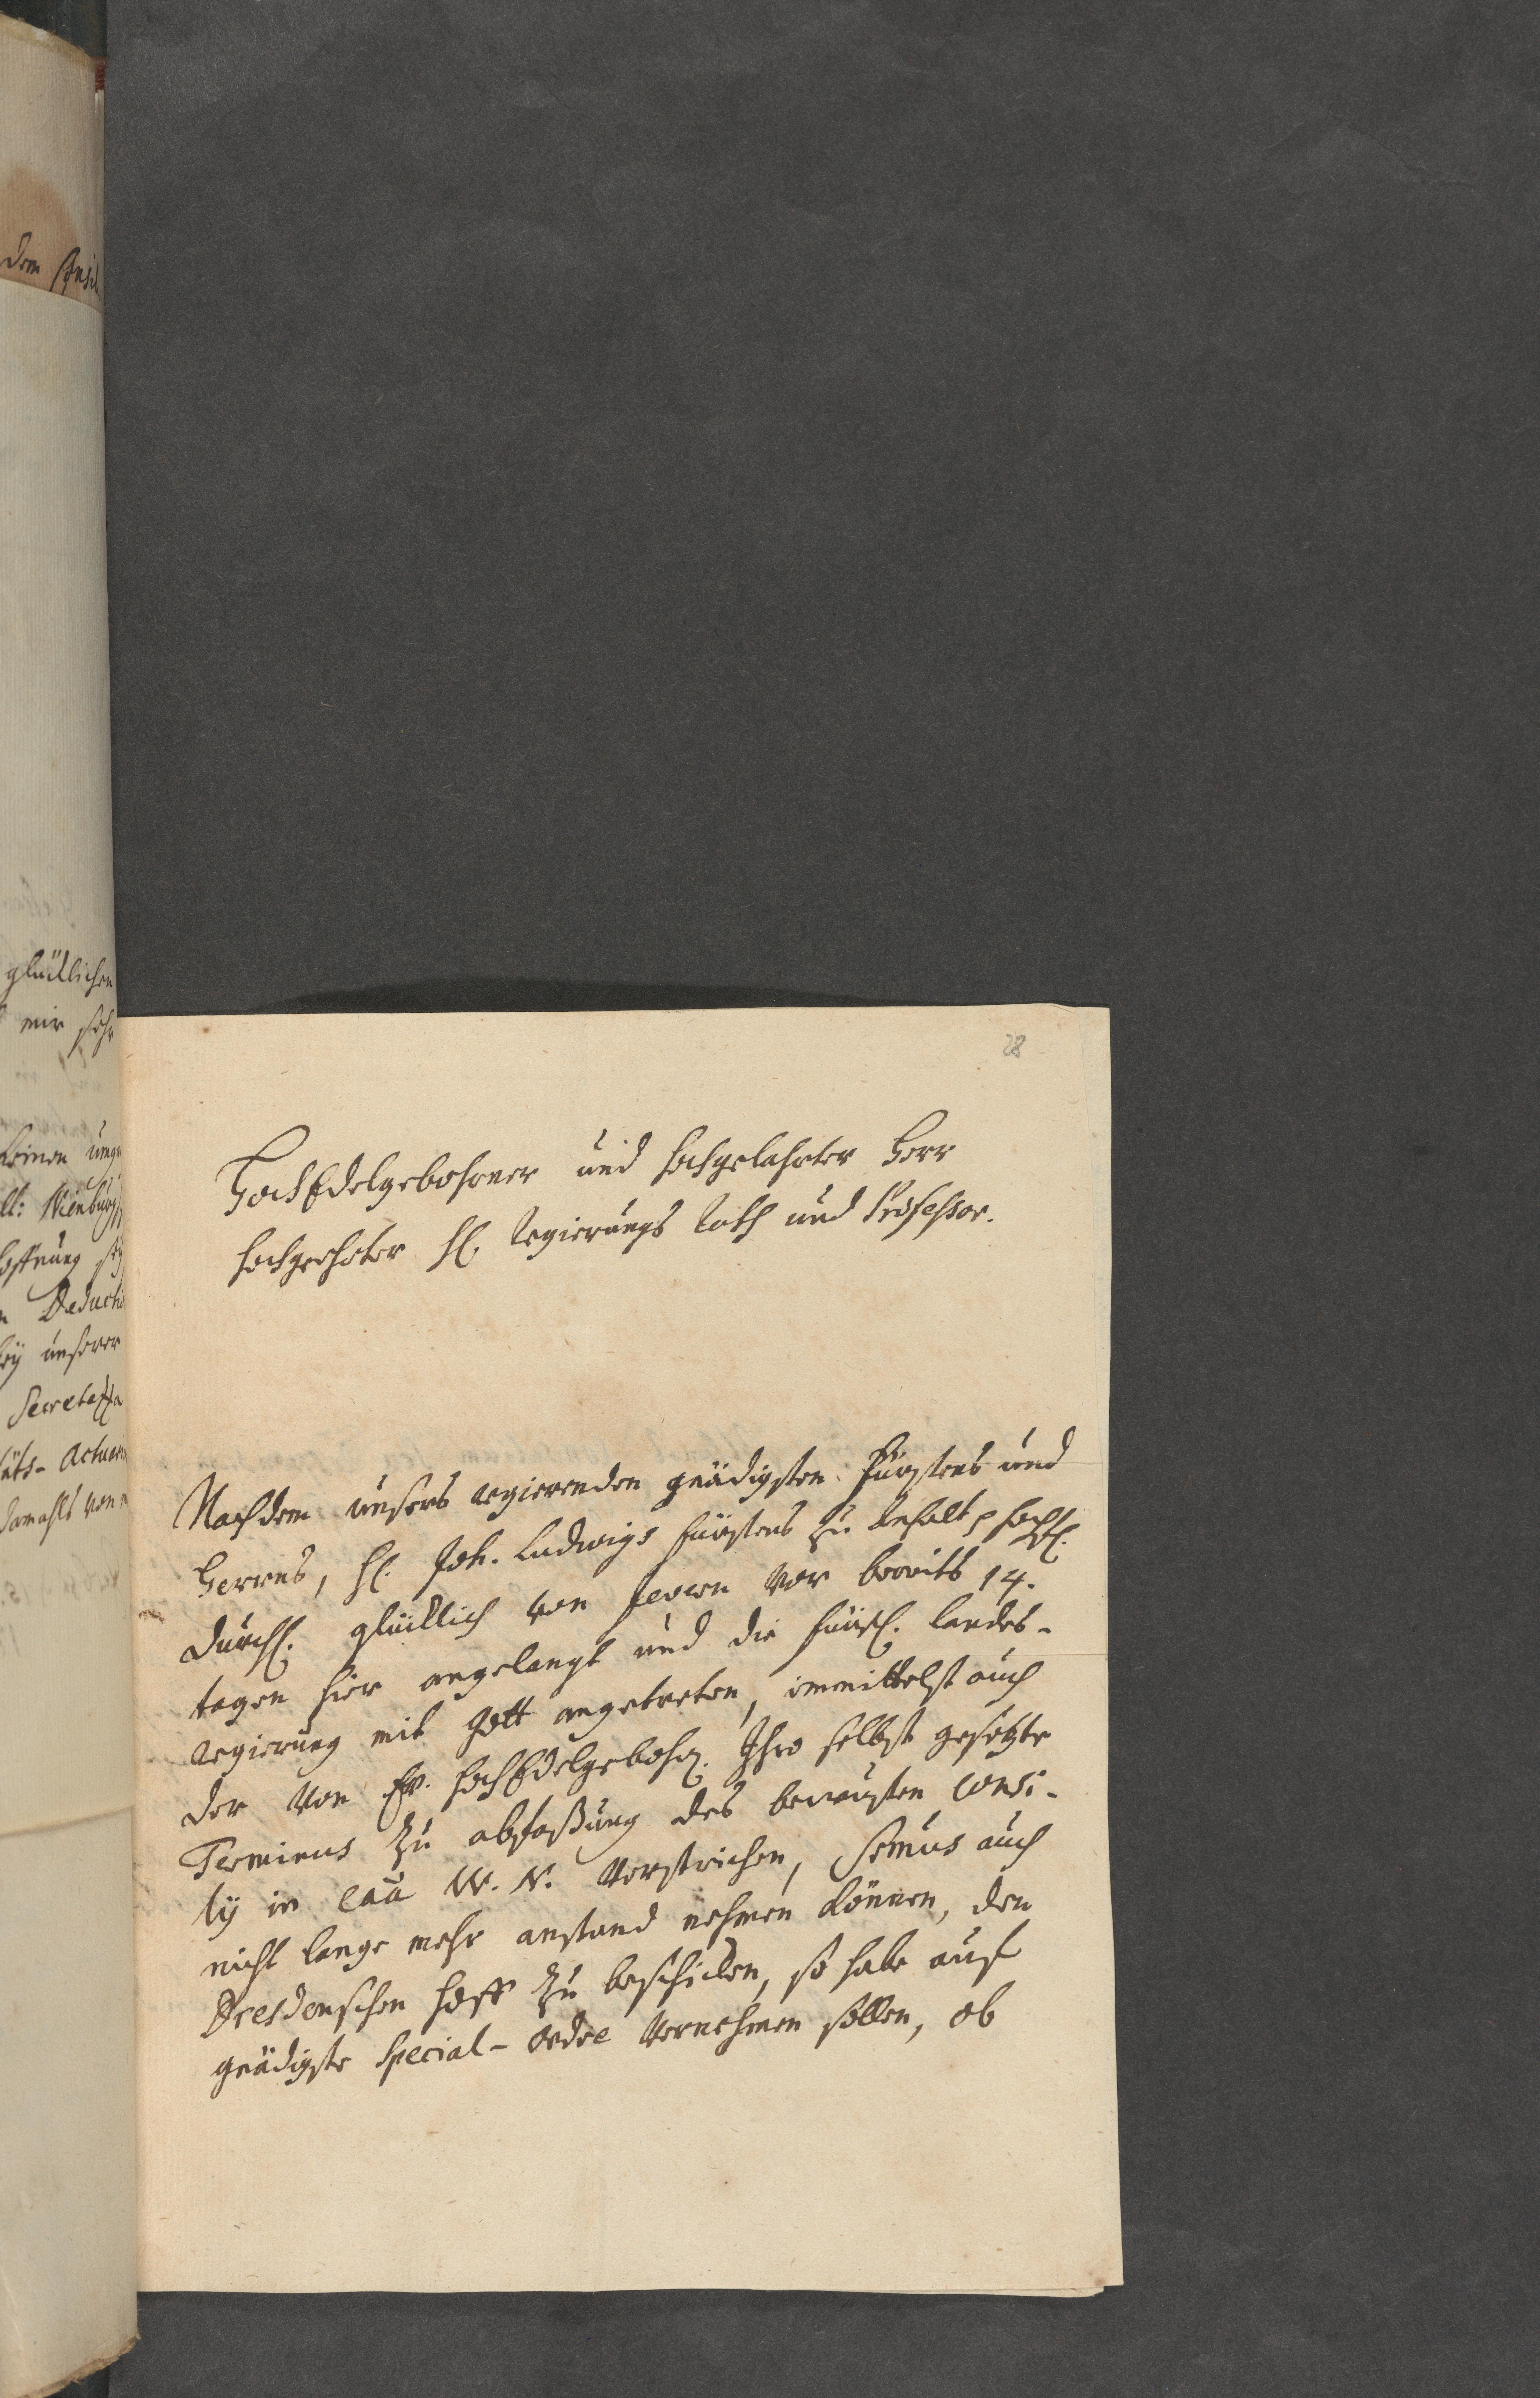 dem
glücklichen
mir sehr
keinen
Nienburg
Hoffnung
Deducti
bey unserer
Secreta
Actuar
damahls von
28
HochEdelgebohrner und Hochgelahrter Herr
Hochgeehrter H. Regierungs Rath und Professor.
Nachdem unsers regierenden gnädigsten Fürstens und
Herrns, H. Joh. Ludwigs Fürstens zu Anhalt p Hochfl.
Durchl. glücklich von Jevern vor bereits 14.
tagen hier angelangt und die Fürstl. Landes-
regierung mit Gott angetreten, immittelst auch
der von Ew. HochEdelgebohr. Ihro selbst gesetzte
Terminus zu abfaßung des bewusten Consi-
lij in Caa W. N. verstrichen, Smus auch
nicht lange mehr anstand nehmen können, den
Dresdenschen Hoff zu beschicken, so habe auf
gnädigste Special-Ordre vernehmen sollen, ob